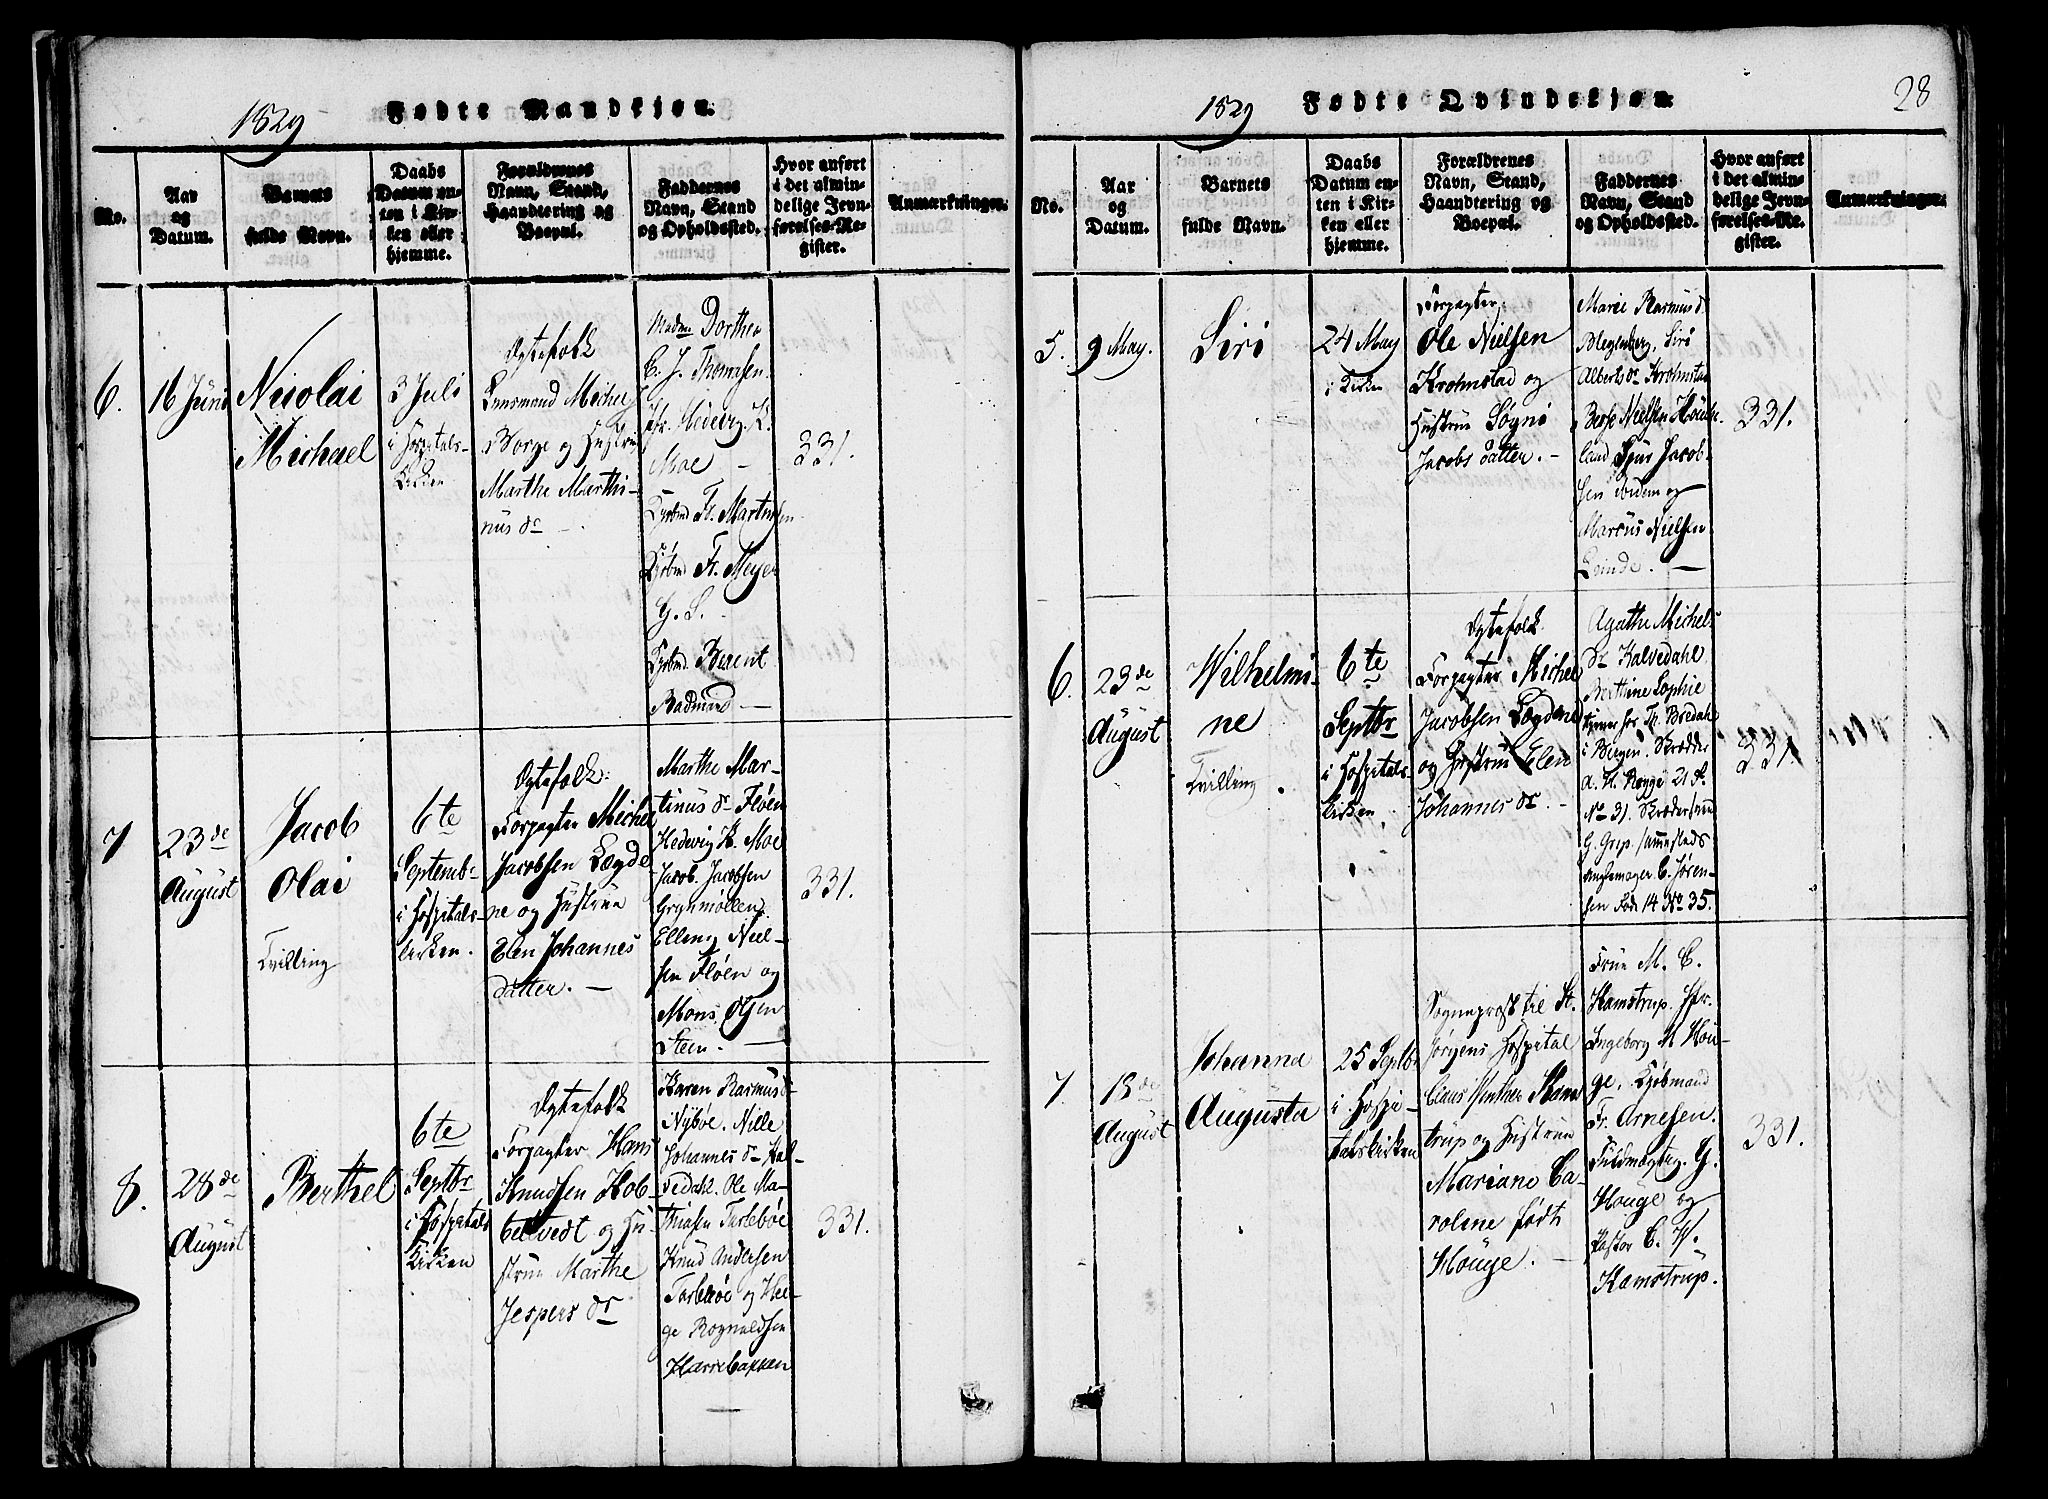 1829
Fødte Mandkjøn.
No.
Aar
og
Datum.
Barnets
fulde Navn.
Daabs
Datum en-
ten i Kir-
ken eller
hjemme.
Forældrenes
Navn, Stand,
Haandtering og
Boepæl.
Faddernes
Navn, Stand
og Opholdssted.
Hvor anført
i det almin-
delige Jevn-
førelses-Re-
gister.
Anmærkninger.
6.
16 Juni
Nicolai
Michael
3 Juli
i Hospitals-
Kirken
Ægtefolk
Lensmand Michel
Borge og Hustru
Marthe Marthi-
nus dr
Madme Dorthea
C. J. Thomsen.
Jfr. Hedevig K.
Moe
Kjøbmd Fr. Martensen
Kjøbmd Fr. Meyer
G. S.
Kjøbmd. Berent
Radmand
331.
7
23de
August
Jacob
Olai
Tvilling
6te
Septembr
i Hospitals-
kirken.
Ægtefolk:
Forpagter Michel
Jacobsen Lægde
ne og Hustrue
Elen Johannes
datter.
Marthe Mar-
tinus dr Fløen
Hedevig K. Moe
Jacob Jacobsen
Grynmøllen
Elling Niel-
sen Fløen og
Mons Olsen
Steen.
331.
8.
28de
August
Berthel
6te
Septbr
i Hospitals
Kirken
Ægtefolk
Forpagter Hans
Knudsen Hob-
beltvedt og Hu-
strue Marthe
Jespers dr
Karen Rasmus dr
Nybøe. Nille
Johannes dr Kal-
vedahl. Ole Ma-
thiasen Tarlebøe
Knud Andersen
Tarlebøe og Hel-
ge Rognaldsen
331.
28
1829
Fødte Qvindekjøn.
No.
Aar
og
Datum.
Barnets
fulde Navn.
Daabs
Datum en-
ten i Kir-
ken eller
hjemme.
Forældrenes
Navn, Stand,
Haandtering og
Boepæl.
Faddernes
Navn, Stand
og Opholdssted.
Hvor anført
i det almin-
delige Jevn-
førelses-Re-
gister.
Anmærkninger.
5.
9 May.
Siri
24 May
i Kirken
Forpagter
Ole Nielsen
Krohnstad og
Hustrue Søgni
Jacobs datter.
Marie Rasmus d.
Siri
Alberts dr Krohnstad
Nielsen Houk-
land Sjur Jacob-
sen ibidem og
Marcus Nielsen
331.
6.
23de
August
Wilhelmi-
ne
Tvilling
6te
Septbr
i Hospitals-
kirken
Ægtefolk
Forpagter Michel
Jacobsen Lægdene
og Hustrue Elen
Johannes dr.
Agathe Michels
dr Kalvedahl
Berthine Sophie
hos Th. Bredahl
i Bergen. Skrædder
A. H. Rogge 21 R.
No 31. Skrædersvend
G. Grip. sammesteds
C. Jøren-
sen Rode 14 No 35.
331.
7
18de
August
Johanna
Augusta
25 Septbr
i Hospi-
talskirken
Sognepræst til St.
Jørgens Hospital
Claus Winther Kam-
trup og Hustrue
Mariane Ca-
roline født
Houge.
Frue M. C.
Kamstrup. Jfr.
Ingeborg M Hou-
ge, Kjøbmand
Fr. Arnesen.
Fuldmægtig. G.
Houge og
Pastor C. W.
Kamstrup.
331.